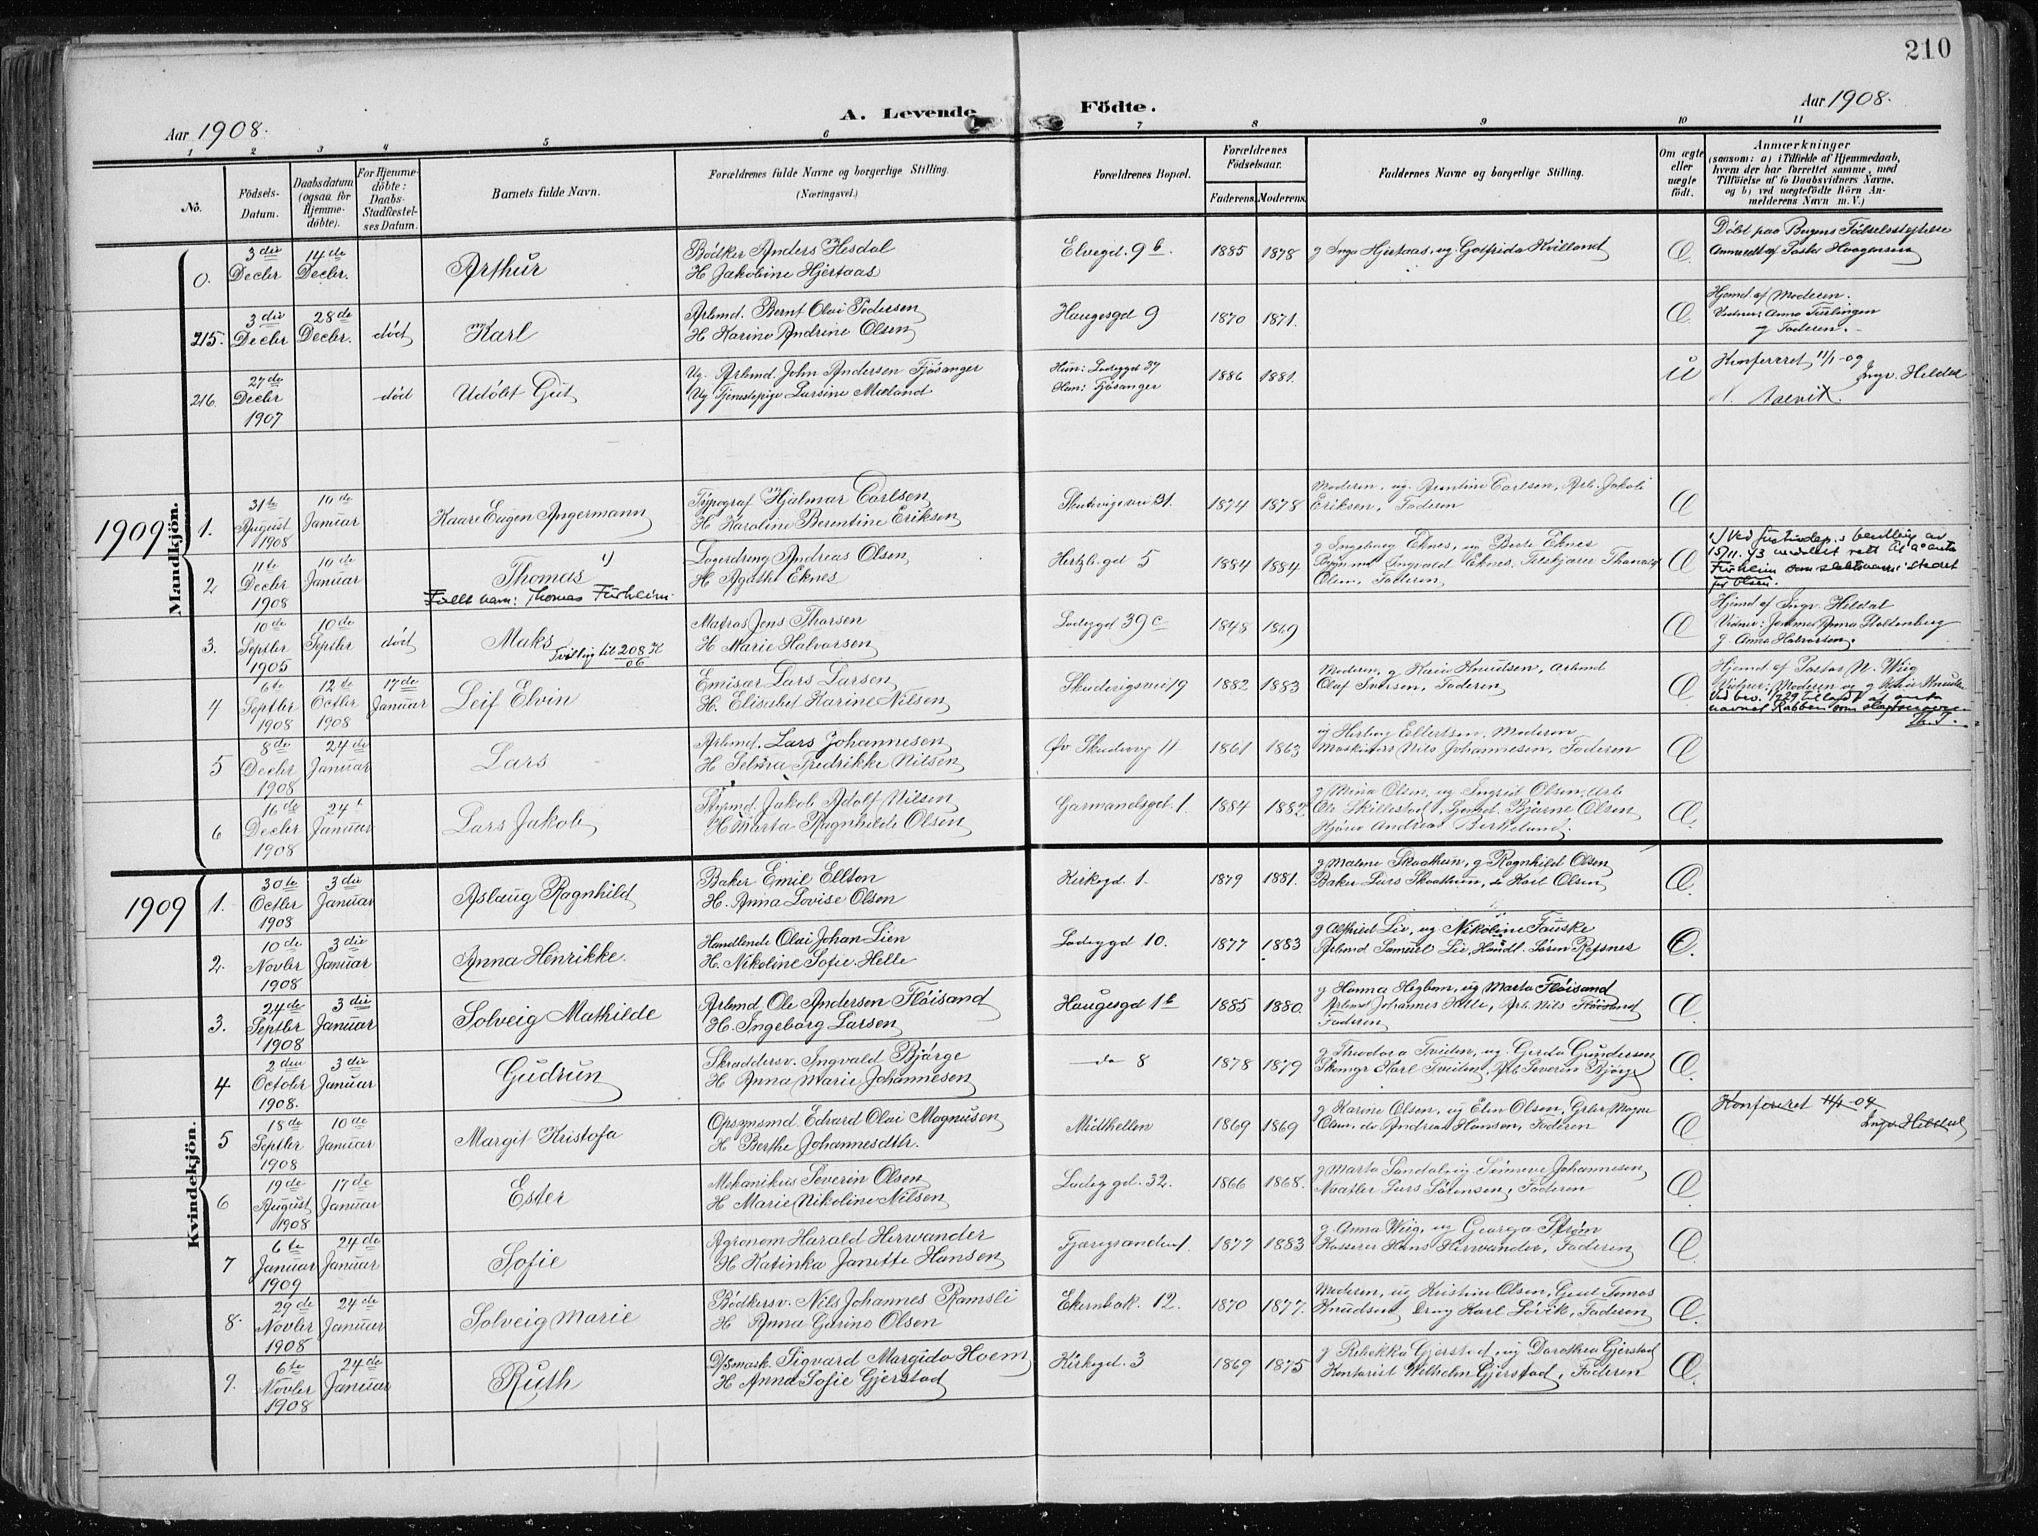 210
A. Levende Födte.
Aar 1908. Aar 1908.
1 2 3 4 5 6 7 8 9 10 11
No. Födsels-Datum. Daabsdatum (ogsaa for Hjemmedöbte). For Hjemmedöbte: Daabs-Stadfæstelses Datum. Barnets fulde Navn. Forældrenes fulde Navne og borgerlige Stilling. (Næringsvei.) Forældrenes Bopæl. Forældrenes Födselsaar. Faderens. Moderens. Faddernes Navne og borgerlige Stilling. Om ægte eller uægte födt. Anmærkninger (saasom: a) i Tilfælde af Hjemmedaab, hvem der har forrettet samme, med Tilföielse af to Daabsvidners Navne, og b) ved uægtefödte Börn Anmelderens Navn m. V.)
Mandkjön.
0. 3die Decbr 14de Decbr. Arthur Bødker Anders Hesdal
H. Jakobine Hjertaas Elvegd. 9b. 1885 1878 g Inga Hjertaas, ug Golfrida Kvilland Æ. Døbt paa Byens Fødselsstiftelse
Anmeldt af Pastor Haagensen
215. 3die Decbr 28de Decbr. død Karl Arbmd. Bernt Olai Pedersen
H. Karine Andrine Olsen Haugesgd 9 1870 1871. Æ. Hjemd. af Moderen.
Vidner: Anna
g Faderen.
216. 27de Decbr 1907 død Udöbt Gut Ug. Arbmd. John Andersen Fjösanger
Ug Tjenestepige Larsine Mæland Hun: Ladeggd 37
Han: Fjösanger 1886 1881. U Konfereret 11/1-09
Ingv. Heldal
1909
1. 31te August 1908 10de Januar Kaare Eugen Angermann Typograf Hjalmar Carlsen
H Karoline Berentine Eriksen Skutevigsvei 31. 1874 1878 Moderen, ug. Berntine Carlsen, Arb. Jakob
Eriksen, Faderen Æ
2 11te Decbr 1908 10de Januar Thomas 1)
Fullt navn: Thomas Furheim. Andreas Olsen
H. Agathe Eknes Hertzb.gd 5 1884 1884 g Ingeborg Eknes, ug Berte Eknes
Ingvald Eknes, Fiskjører Thomas
Olsen, Faderen Æ 1) Ved justisdep.s bevilling av
15/11.43 meddelt rett til å anta
Furheim som slektsnavn i stedet
for Olsen.
3. 10de Septbr 1905 10de Septbr død Maks
Tvilling til 208 K/06 Matros Jens Thorsen
H Marie Halvorsen Ladeggd 39c 1848 1869 Æ Hjemd af Ingv. Heldal
Vidner: Anna Stoltenberg
g. Anna Halvorsen.
4 6te Septbr 1908 12te Octbr 1908 17de Januar Leif Elvin Emisær Lars Larsen
H. Elisabet Karine Nilsen Skudevigsvei 19 1882 1883 Moderen, g Karen Knudsen, Arbmd
Olaf Iversen, Faderen Æ Hjemd. af Pastor N. Wiig
Vidner: Moderen og g Karen Knudsen
Ved bev. 1929 tillatt at anta
navnet Rabben som slegtsnavn
Th. T.
5 8de Decbr 1908 24de Januar Lars Arbmd. Lars Johannesen
H Selma Fredrikke Nilsen Øv Skudevig 11 1861 1863 ug Herborg Ellertsen, Moderen
Maskinass Nils Johannesen, Faderen Æ
6 16de Decbr 1908 24 Januar Lars Jakob Styrmd. Jakob Adolf Nilsen
H Marta Ragnhilde Olsen Garmandsgd. 1. 1884 1882 g Mina Olsen, ug Ingrid Olsen, Arb
Ole Skillestad, Bjarne Olsen
Andreas Berkeland. Æ.
Kvindekjön.
1909
1. 30te Octbr 1908 3die Januar Aslaug Ragnhild Baker Emil Ellton
H. Anna Lovise Olsen Kirkegd. 1. 1879 1881. g Malene Skaathun, g Ragnhild Olsen
Baker Lars Skaathun, do Karl Olsen Æ.
2. 10de Novbr 1908 3die Januar Anna Henrikke. Handlende Olai Johan Lien
H. Nikoline Sofie Helle Ladeggd 10. 1877 1883 g Alfhild Lie, ug Nikoline Tauske
Arbmd Samuel Lie, Handl. Søren Refsnes Æ.
3. 24de Septbr 1908 3die Januar Solveig Mathilde Arbmd Ole Andersen Flöisand
H. Ingeborg Larsen Haugesgd 1b 1885 1880. g Hanna Hegbom, ug Marta Flöisand
Arbmd Johannes Helle, Arb. Nils Flöisand
Faderen Æ
4. 2den October 1908. 3die Januar Gudrun Skræddersv. Ingvald Bjørge
H Anna Marie Johannesen do 8 1878 1879 g Theodora Tveiten, ug. Gerda Gundersen
Skomgr Karl Tveiten, Arb Severin Bjørge Æ.
5 18de Septbr 1908 10de Januar Margit Kristofa Opsynsmd. Edvard Olai Magnusen
H Berthe Johannesdtr. Midthellen 1869 1869 g Karine Olsen, ug Elen Olsen, Magne
Olsen, do Andreas Hansen, Faderen Æ Konfereret 11/1-09
Ingv Heldal
6 19de August 1908 17de Januar Ester Mekanikus Severin Olsen
H Marie Nikoline Nilsen Ladeggd. 32. 1866 1868. g Marta Sandal, ug. Sinneve Johannesen
Lars Sörensen, Faderen Æ
7 6te Januar 1909 24de Januar Sofie Agronom Harald Herwander
H Katinka Janette Hansen Tjæregranden 1. 1877 1883 g. Anna Wiig, ug Georga Strøm
Kasserer Hans Herwander, Faderen Æ
8. 29de Novbr 1908 24de Januar Solveig Marie Bödkersv. Nils Johannes Ramsli
H Anna Garine Olsen Ekernbak. 12. 1870 1877. Moderen, ug Kristine Olsen, Tomas
Knudsen, Karl Løvik, Faderen Æ.
9. 6te Novbr 1908 24de Januar Ruth D/Smask. Sigvard Margido Hoem
H Anna Sofie Gjerstad Kirkegd. 3 1869 1875 g Rebekka Gjerstad, ug Dorothea Gjerstad
Kontorist Wilhelm Gjerstad, Faderen Æ.